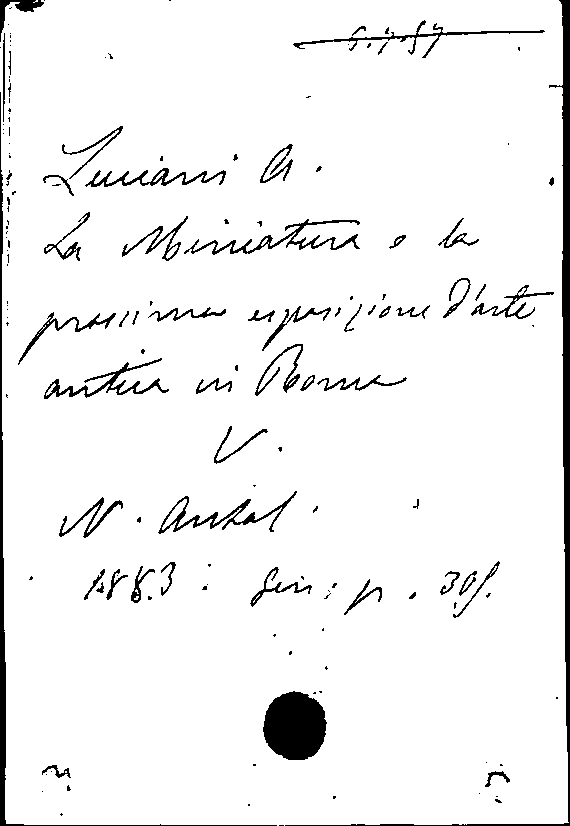 6.7.57
Luciani A.
La Miniatura e la
prossima esposizione d'arte
antica in Roma
V.
N. Antol.
1883. Gen. p. 305.